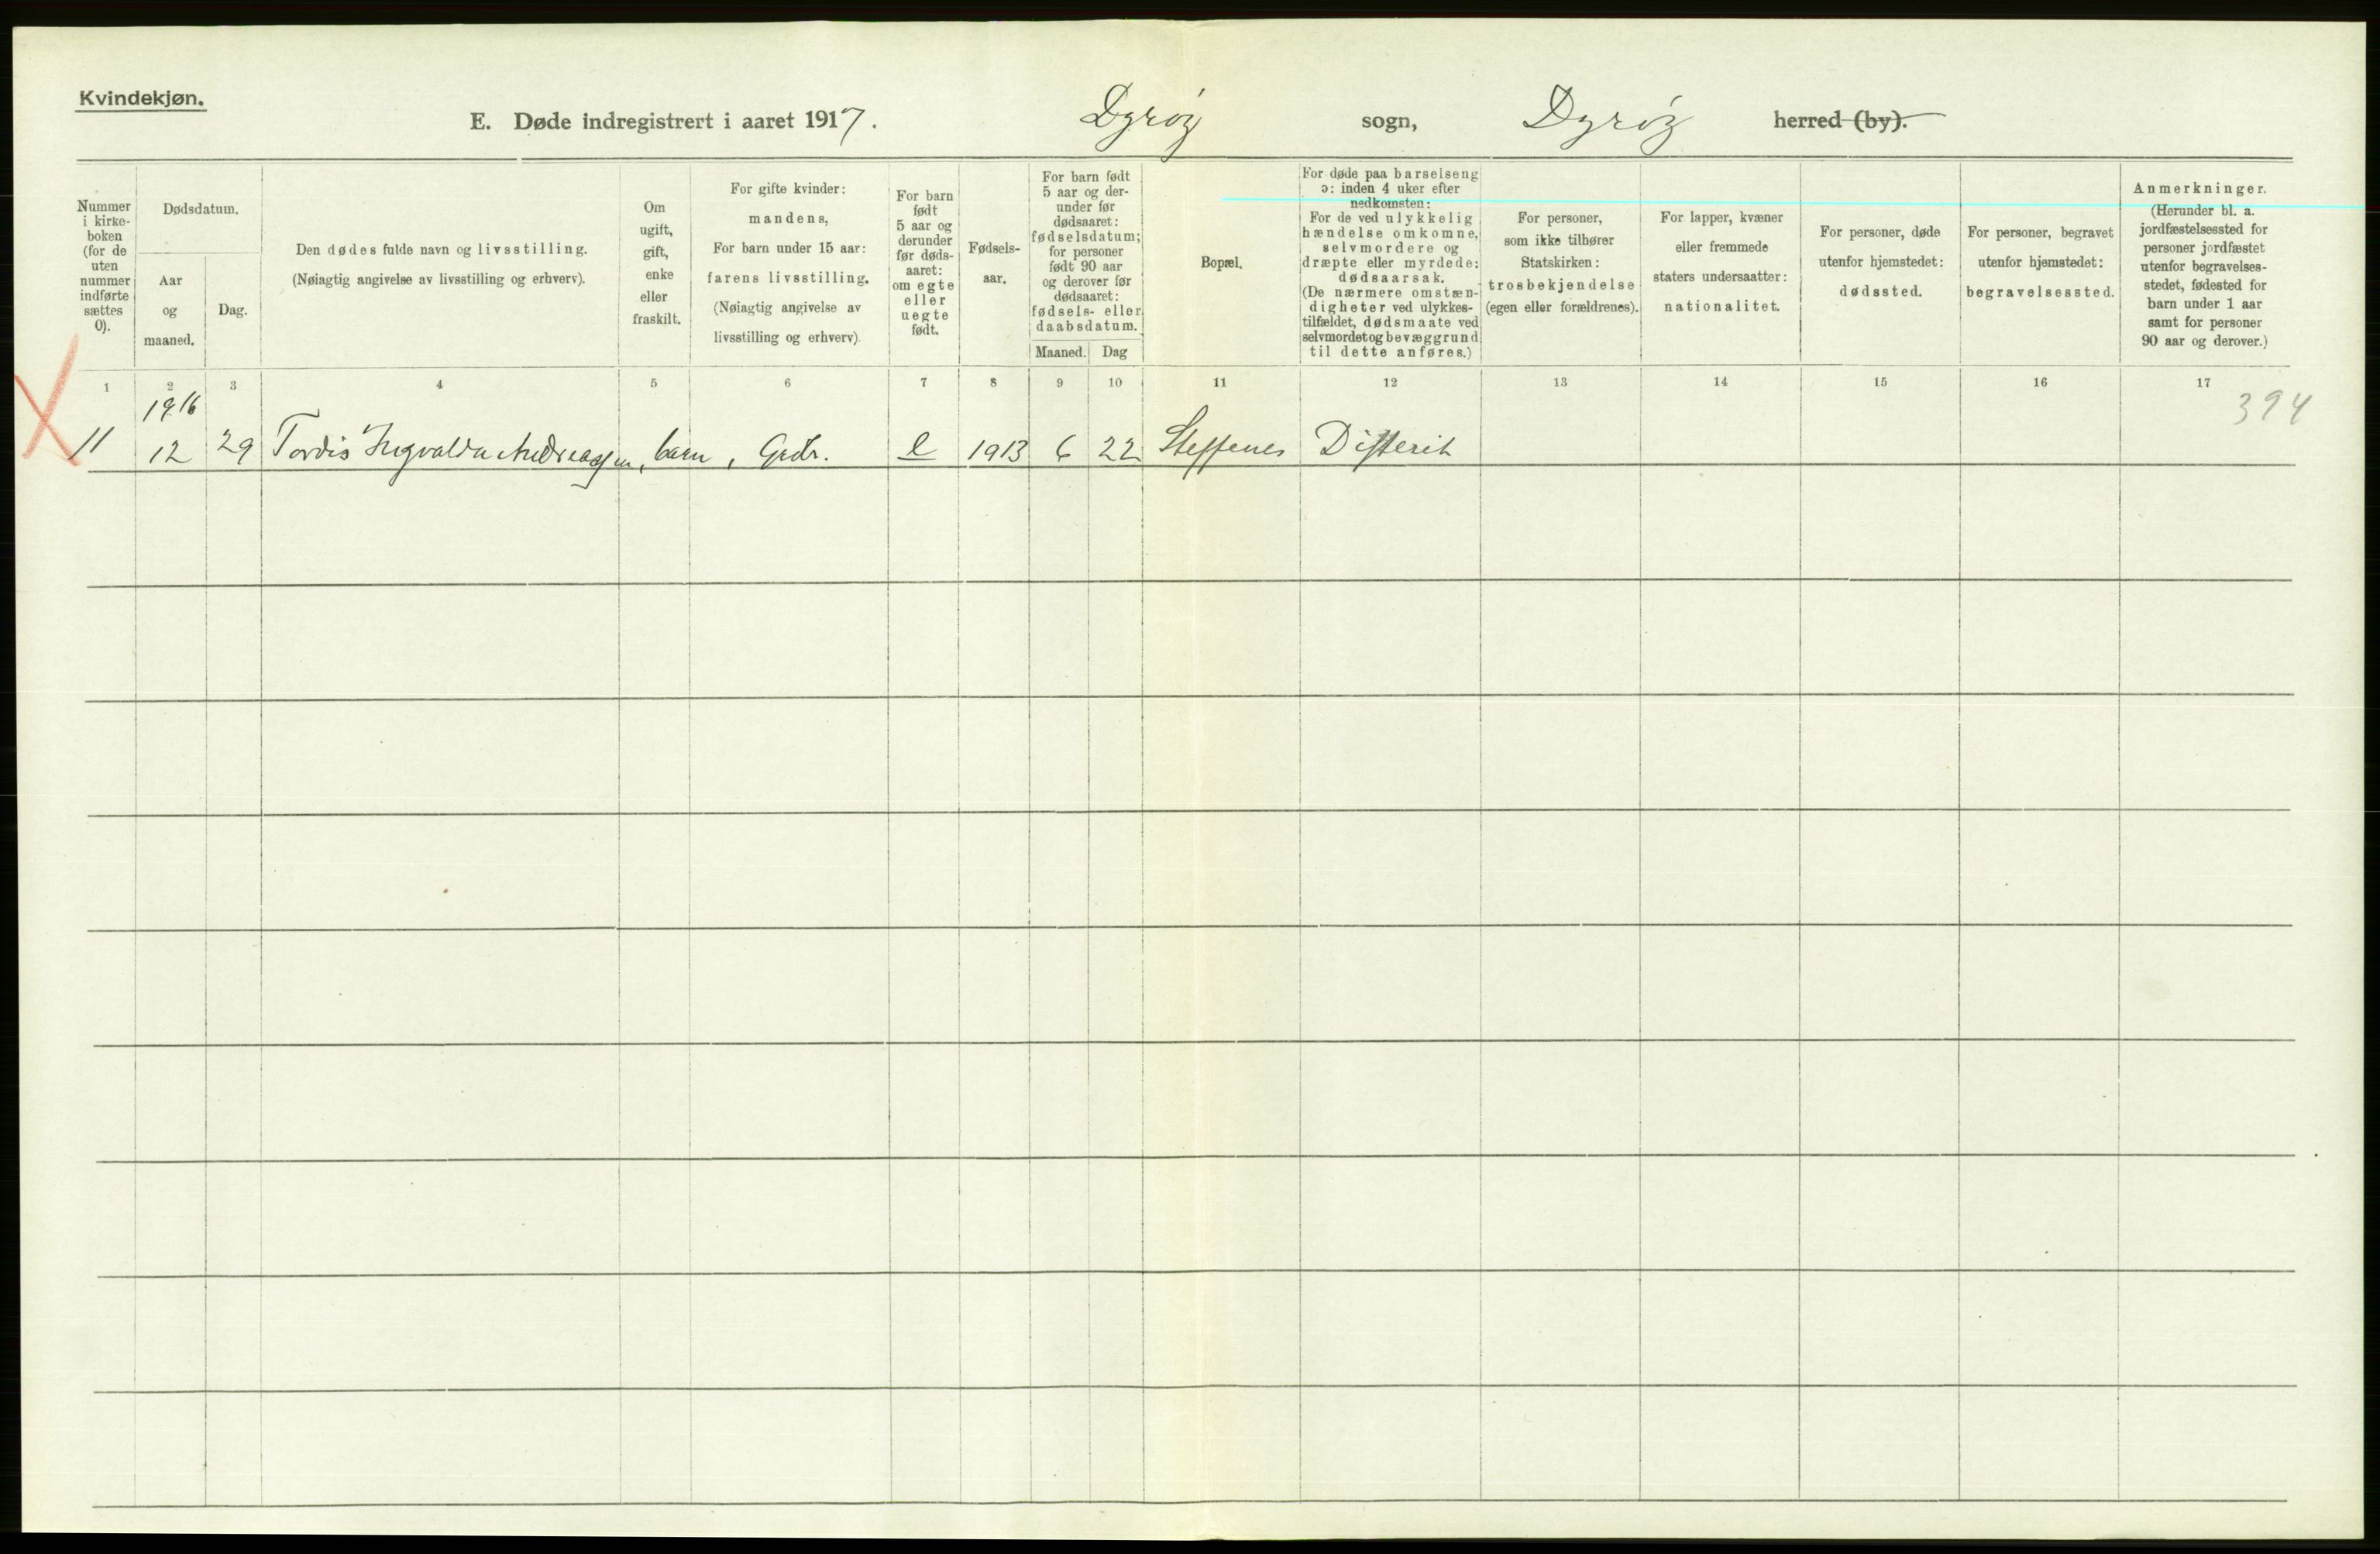 Kvindekjøn.
E. Døde indregistrert i aaret 1917. Dyröy sogn, Dyröy herred (by).
Nummer i kirke- boken (for de uten nummer indførte sættes 0).
Dødsdatum.
Aar og maaned.
Dag.
Den dødes fulde navn og livsstilling.
(Nøiagtig angivelse av livsstilling og erhverv).
Om ugift, gift, enke eller fraskilt.
For gifte kvinder:
mandens,
For barn under 15 aar:
farens livsstilling.
(Nøiagtig angivelse av
livsstilling og erhverv)
For barn født 5 aar og derunder før døds- aaret: om egte eller uegte født.
Fødsels- aar.
For barn født 5 aar og der- under før dødsaaret: fødselsdatum; for personer født 90 aar og derover før dødsaaret: fødsels- eller daabsdatum.
Maaned. Dag
Bopæl.
For døde paa barselseng ɔ: inden 4 uker efter nedkomsten:
For de ved ulykkelig hændelse omkomne, selvmordere og dræpte eller myrdede: dødsaarsak.
(De nærmere omstæn- digheter ved ulykkes- tilfældet, dødsmaate ved selvmordet og bevæggrund til dette anføres.)
For personer, som ikke tilhører Statskirken: trosbekjendelse (egen eller forældrenes).
For lapper, kvæner eller fremmede staters undersaatter: nationalitet.
For personer, døde utenfor hjemstedet: dødssted.
For personer, begravet utenfor hjemstedet: begravelsessted.
Anmerkninger.
(Herunder bl. a. jordfæstelsessted for personer jordfæstet utenfor begravelses- stedet, fødested for barn under 1 aar samt for personer 90 aar og derover.)
1 2 3 4 5 6 7 8 9 10 11 12 13 14 15 16 17
1916
394
11 12 29 Tordis Ingvalda Andreassen, barn, Grdbr. e 1913 6 22 Steffenes Difterit